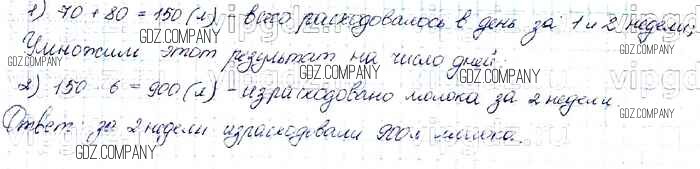 1) 70 + 80 = 150 (л) - всего расходовалось в день за 1 и 2 недели;
GDZ.COMPANY
Умножим этот результат на число дней:
GDZ.COMPANY
GDZ.COMPANY
2) 150 · 6 = 900 (л) - израсходовано молока за 2 недели
GDZ.COMPANY
Ответ: за 2 недели израсходовали 900 л молока.
GDZ.COMPANY
GDZ.COMPANY